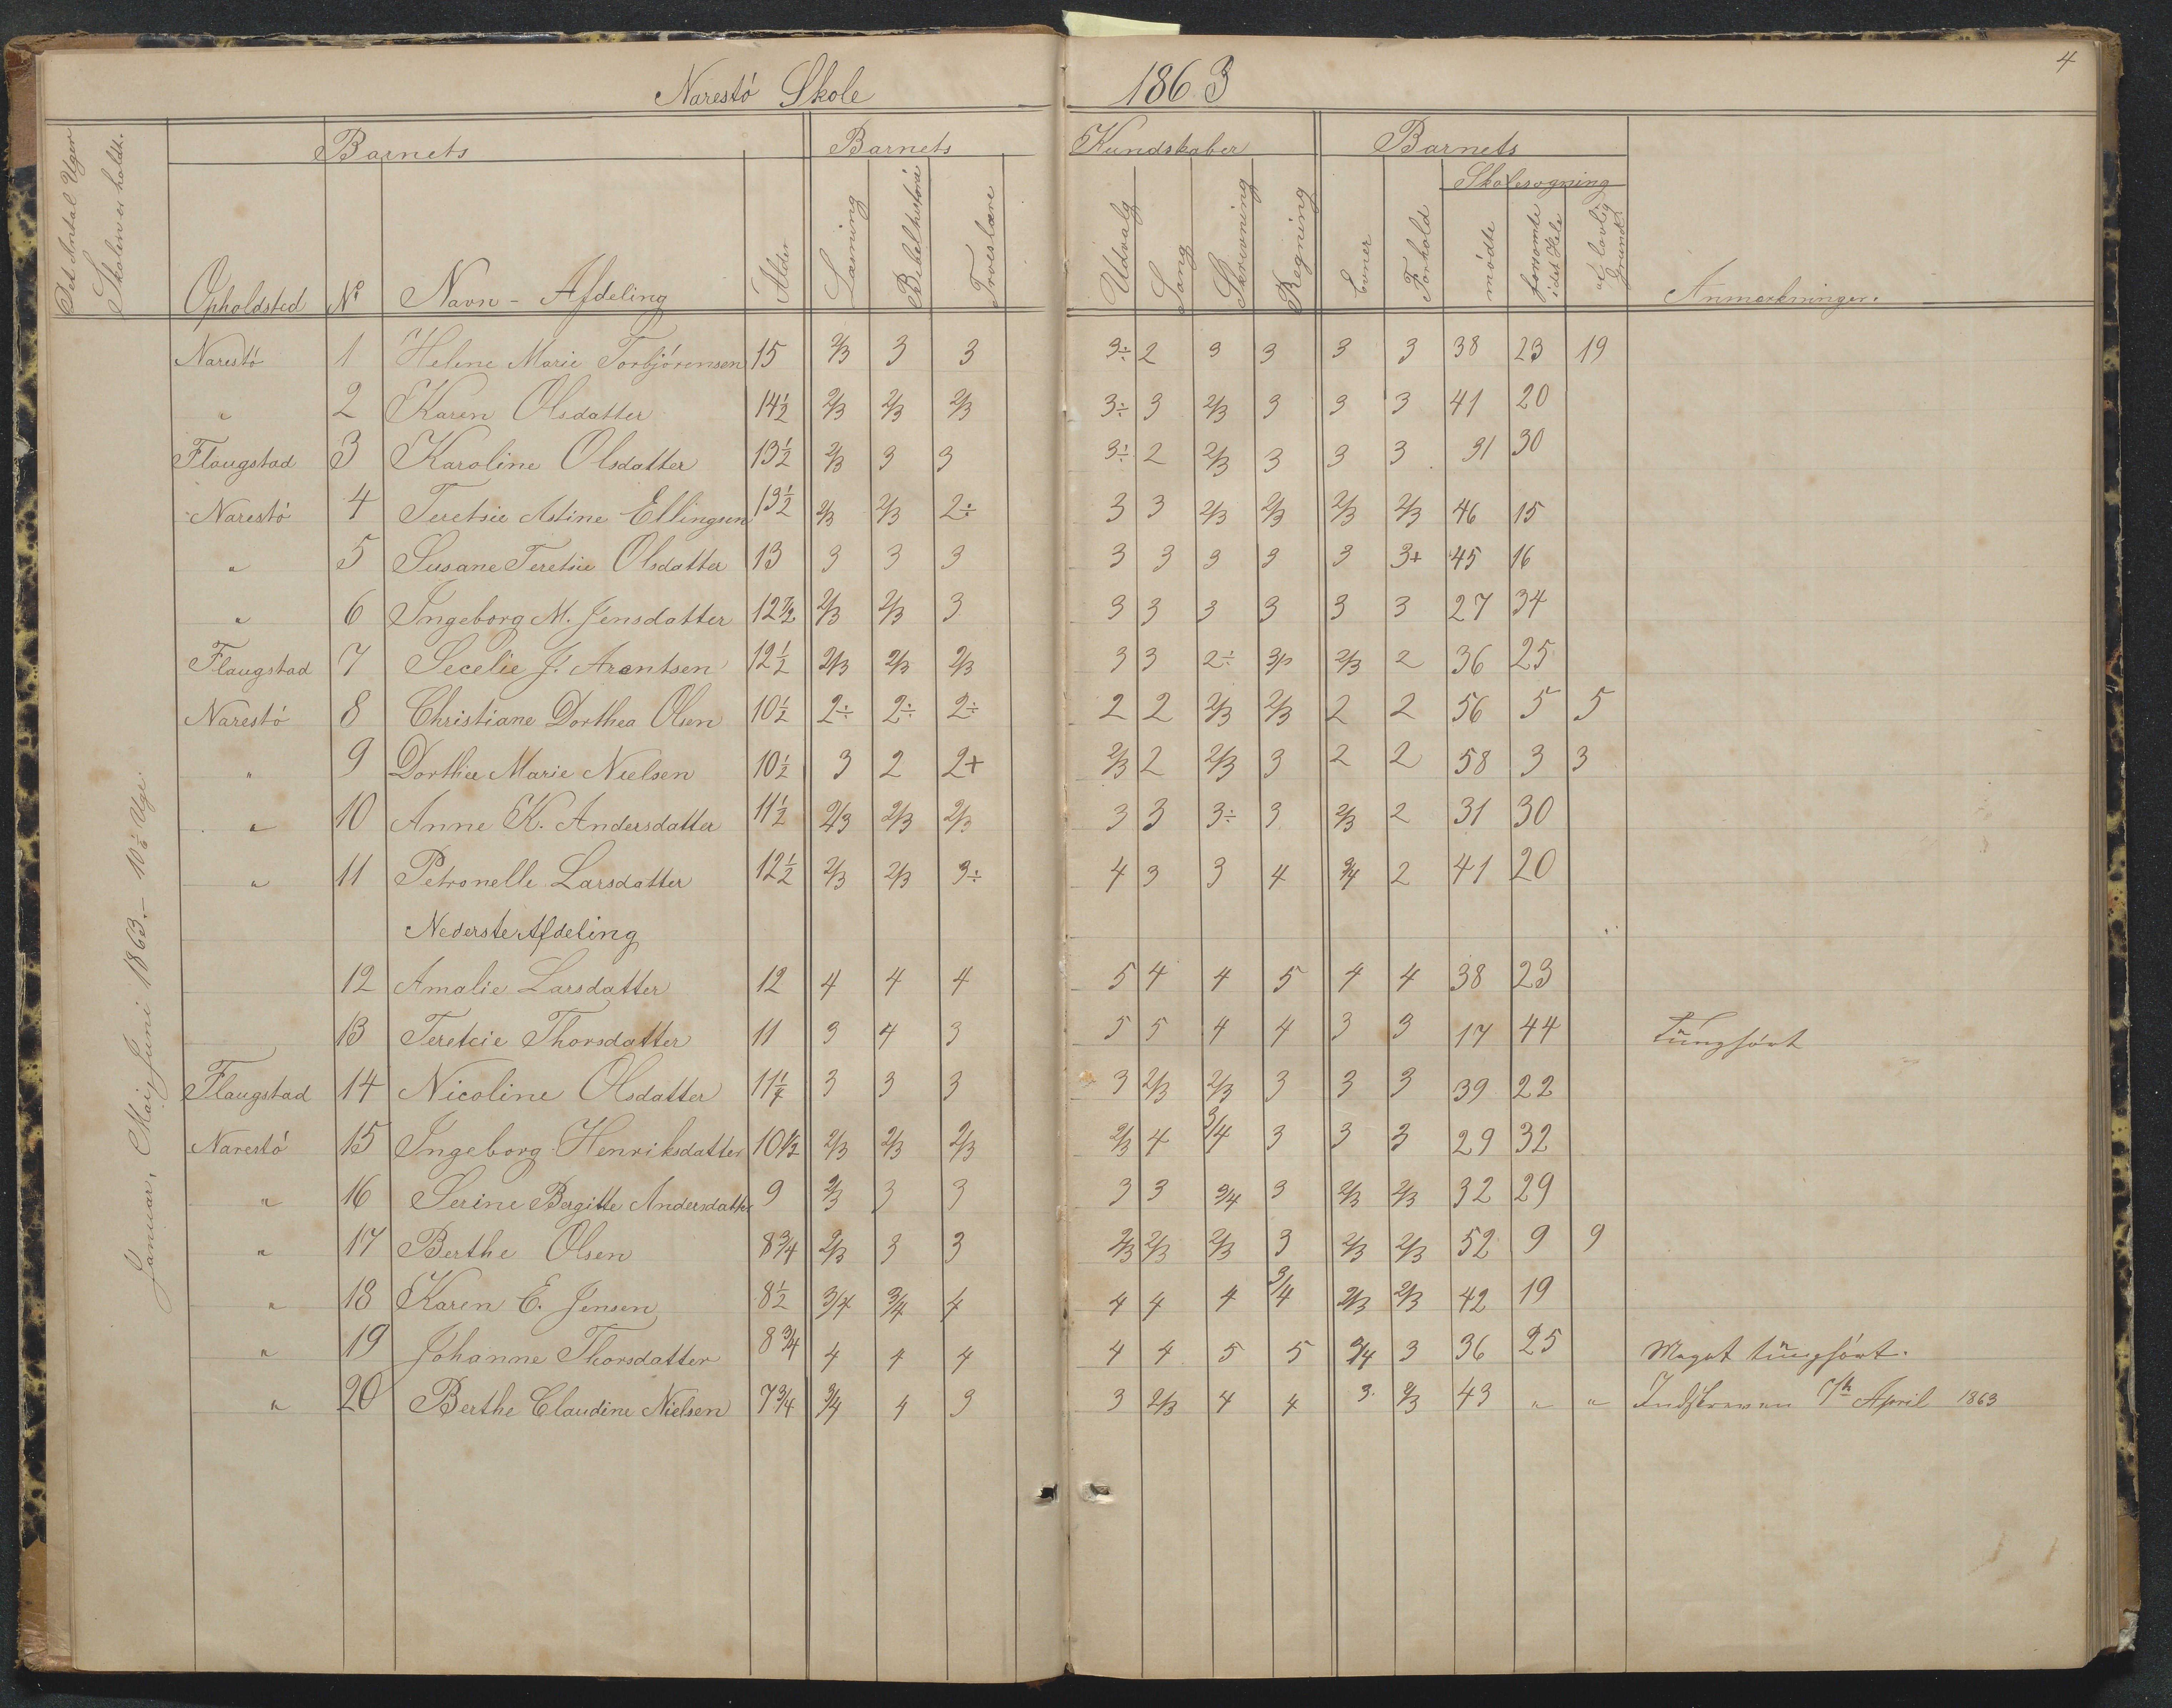 4
Narestö Skole 1863
Det Antal Uger
Skolen er holdt.
Barnets Barnets Kundskaber Barnets
Skolesøgning
Opholdsted No Navn - Afdeling Alder Læsning Bibelhistorie Troeslære Udvalg Sang Skrivning Regning Evner Forhold mödte forsömte i det Hele af lovlig Grund Anmærkninger.
Januar, Mai, Juni 1863. - 10 1/6 Uge.
Narestö 1 Helene Marie Torbjörensen 15 2/3 3 3 3÷ 2 3 3 3 3 38 23 19
" 2 Karen Olsdatter 14 1/2 2/3 2/3 2/3 3÷ 3 2/3 3 3 3 41 20
Flaugstad 3 Karoline Olsdatter 13 1/2 2/3 3 3 3÷ 2 2/3 3 3 3 31 30
Narestö 4 Teretsie Astine Ellingsen 13 1/2 2/3 2/3 2÷ 3 3 2/3 2/3 2/3 2/3 46 15
" 5 Susane Teretsie Olsdatter 13 3 3 3 3 3 3 3 3 3+ 45 16
" 6 Ingeborg M. Jensdatter 12 1/2 2/3 2/3 3 3 3 3 3 3 3 27 34
Flaugstad 7 Secelie J. Arentsen 12 1/2 2/3 2/3 2/3 3 3 2÷ 2/3 2 36 25
Narestö 8 Christiane Dorthea Olsen 10 1/2 2÷ 2÷ 2÷ 2 2 2/3 2/3 2 2 56 5 5
" 9 Dorthie Marie Nielsen 10 1/2 3 2 2+ 2/3 2 2/3 3 2 2 58 3 3
" 10 Anne K. Andersdatter 11 1/2 2/3 2/3 2/3 3 3 3÷ 3 2/3 2 31 30
" 11 Petronelle Larsdatter 12 1/2 2/3 2/3 3÷ 4 3 3 4 3/4 2 41 20
Nederste Afdeling
12 Amalie Larsdatter 12 4 4 4 5 4 4 5 4 4 38 23
13 Teretcie Thorsdatter 11 3 4 3 5 5 4 4 3 3 17 44 Tunghört
Flaugstad 14 Nicoline Olsdatter 11 3 3 3 3 2/3 2/3 3 3 3 39 22
Narestö 15 Ingeborg Henriksdatter 10 1/2 2/3 2/3 2/3 2/3 4 3/4 3 3 3 29 32
" 16 Serine Bergitte Andersdatter 9 2/3 3 3 3 3 3/4 3 2/3 2/3 32 29
" 17 Berthe Olsen 8 3/4 2/3 3 3 2/3 2/3 2/3 3 2/3 2/3 52 9 9
" 18 Karen E. Jensen 8 1/2 3/4 3/4 4 4 4 4 3/4 2/3 2/3 42 19
" 19 Johanne Thorsdatter 8 3/4 4 4 4 4 4 5 5 3/4 3 36 25 Meget tunghört.
" 20 Berthe Claudine Nielsen 7 3/4 3/4 4 3 3 2/3 4 4 3. 2/3 43 " " Indskreven April 1863